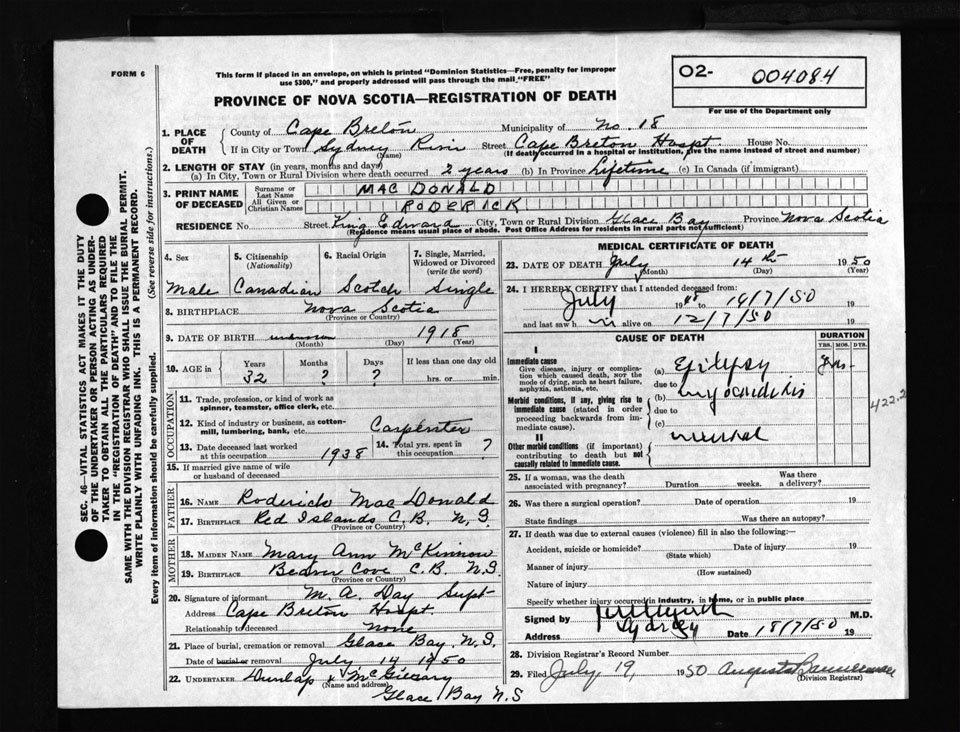 FORM 6
This form if placed in an envelope, on which is printed "Dominion Statistics—Free, penalty for improper
use $300," and properly addressed will pass through the mail "FREE"
O2- 004084
For use of the Department only
PROVINCE OF NOVA SCOTIA—REGISTRATION OF DEATH
SEC. 46—VITAL STATISTICS ACT MAKES IT THE DUTY
OF THE UNDERTAKER OR PERSON ACTING AS UNDER-
TAKER TO OBTAIN ALL THE PARTICULARS REQUIRED
IN THE "REGISTRATION OF DEATH" AND TO FILE THE
SAME WITH THE DIVISION REGISTRAR WHO SHALL ISSUE THE BURIAL PERMIT.
WRITE PLAINLY WITH UNFADING INK. THIS IS A PERMANENT RECORD.
Every item of information should be carefully supplied. (See reverse side for instructions.)
1. PLACE OF DEATH County of Cape Breton Municipality of No. 18
If in City or Town Sydney River Street Cape Breton Hospt. House No.
(Name) (If death occurred in a hospital or institution, give the name instead of street and number)
2. LENGTH OF STAY (in years, months and days)
(a) In City, Town or Rural Division where death occurred 2 years (b) In Province Lifetime (c) In Canada (if immigrant)
3. PRINT NAME OF DECEASED Surname or Last Name MAC DONALD
All Given or Christian Names RODERICK
RESIDENCE No. Street King Edward City, Town or Rural Division Glace Bay Province Nova Scotia
(Residence means usual place of abode. Post Office Address for residents in rural parts not sufficient)
4. Sex 5. Citizenship (Nationality) 6. Racial Origin 7. Single, Married, Widowed or Divorced (write the word)
Male Canadian Scotch Single
8. BIRTHPLACE Nova Scotia
(Province or Country)
9. DATE OF BIRTH unknown 1918
(Month) (Day) (Year)
10. AGE in Years Months Days If less than one day old
32 ? ? hrs. or min.
OCCUPATION
11. Trade, profession, or kind of work as
spinner, teamster, office clerk, etc.
12. Kind of industry or business, as cotton-
mill, lumbering, bank, etc. Carpenter
13. Date deceased last worked at this occupation 1938 14. Total yrs. spent in this occupation 7
15. If married give name of wife
or husband of deceased
FATHER
16. NAME Roderick MacDonald
17. BIRTHPLACE Red Islands C.B. N.S.
(Province or Country)
MOTHER
18. MAIDEN NAME Mary Ann McKinnon
19. BIRTHPLACE Beaver Cove C.B. N.S.
(Province or Country)
20. Signature of informant M. A. Day Supt
Address Cape Breton Hospt
Relationship to deceased None
21. Place of burial, cremation or removal Glace Bay, N.S.
Date of burial or removal July 14 1950
22. UNDERTAKER Dunlap & McGilvary
(Name and address) Glace Bay N.S
MEDICAL CERTIFICATE OF DEATH
23. DATE OF DEATH July 14th 1950
(Month) (Day) (Year)
24. I HEREBY CERTIFY that I attended deceased from:
July 1948 to 14/7/50 19
and last saw h alive on 12/7/50 19
CAUSE OF DEATH DURATION
YRS. MOS. DYS.
I
Immediate cause
Give disease, injury or complica-
tion which caused death, NOT the
mode of dying, such as heart failure,
asphyxia, asthenia, etc.
(a) Epilepsy yrs.
due to
Morbid conditions, if any, giving rise to
immediate cause (stated in order
proceeding backwards from im-
mediate cause).
(b) myocarditis 422.2
due to
(c)
II
Other morbid conditions (if important)
contributing to death but not
causally related to immediate cause.
25. If a woman, was the death associated with pregnancy? Duration weeks. Was there a delivery?
26. Was there a surgical operation? Date of operation 19
State findings Was there an autopsy?
27. If death was due to external causes (violence) fill in also the following:—
Accident, suicide or homicide? Date of injury 19
(State which)
Manner of injury
(How sustained)
Nature of injury
Specify whether injury occurred in industry, in home, or in public place
Signed by M.D.
Address Sydney Date 18/7/50 19
28. Division Registrar's Record Number
29. Filed July 19, 1950 Augusta Bannerman
(Division Registrar)